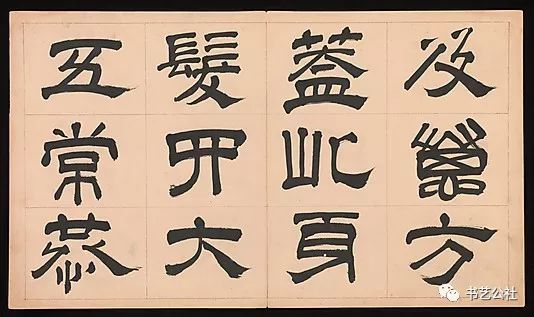 及萬方
蓋此身
髮四大
五常恭
书艺公社